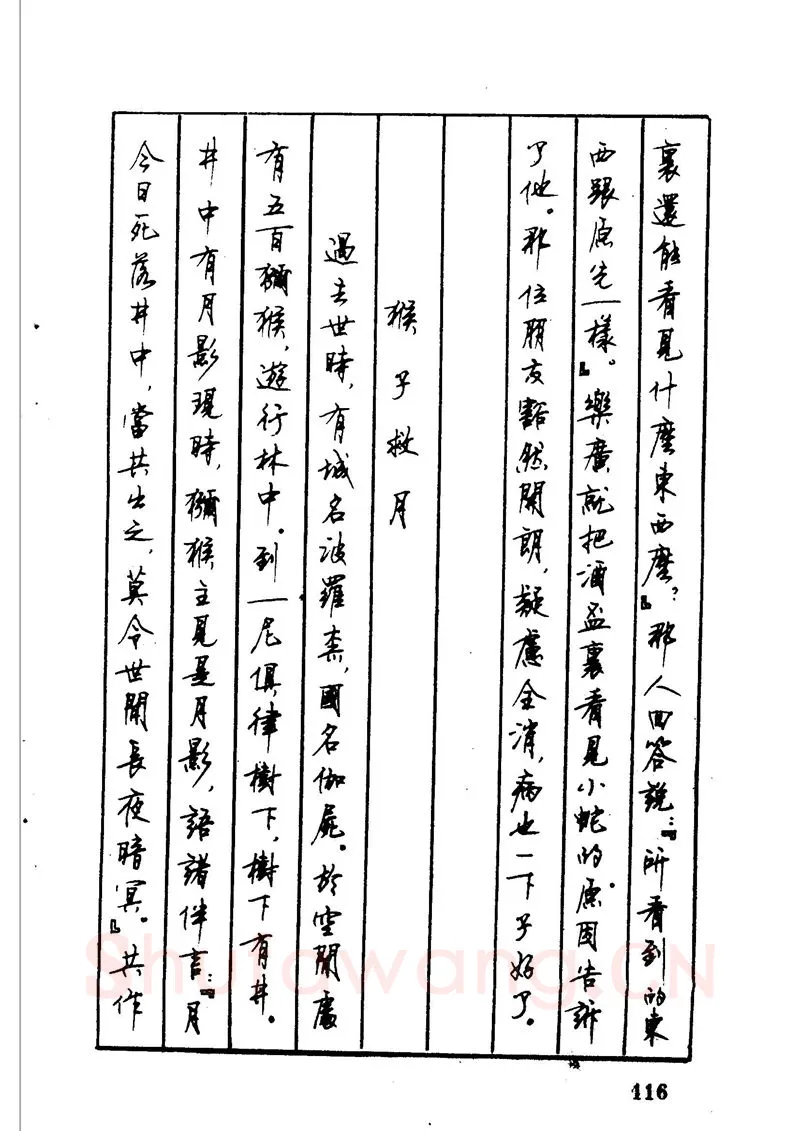 裏還能看見什麼東西麼？』那人回答說：『所看到的東
西跟原先一樣。』樂廣就把酒盃裏看見小蛇的原因告訴
了他。那位朋友豁然開朗，疑慮全消，病也一下子好了。
猴子救月
過去世時，有城名波羅柰，國名伽屍。於空閒處
有五百獼猴，遊行林中。到一尼俱律樹下，樹下有井。
井中有月影現時，獼猴主見是月影，語諸伴言：『月
今日死落井中，當共出之，莫令世間長夜暗冥。』共作
116
Shufawang.CN